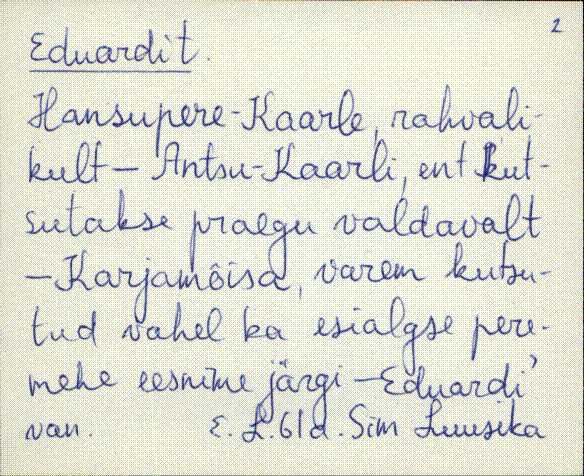 2
Eduardi't.
Hansupere-Kaarle, rahvali-
kult - Antsu-Kaarli, ent kut-
sutakse praegu valdavalt
- Karjamõisa, varem kutsu-
tud vahel ka esialgse pere-
mehe eesnime järgi - Eduardi'
van. E. L. 61a. Sim Luusika